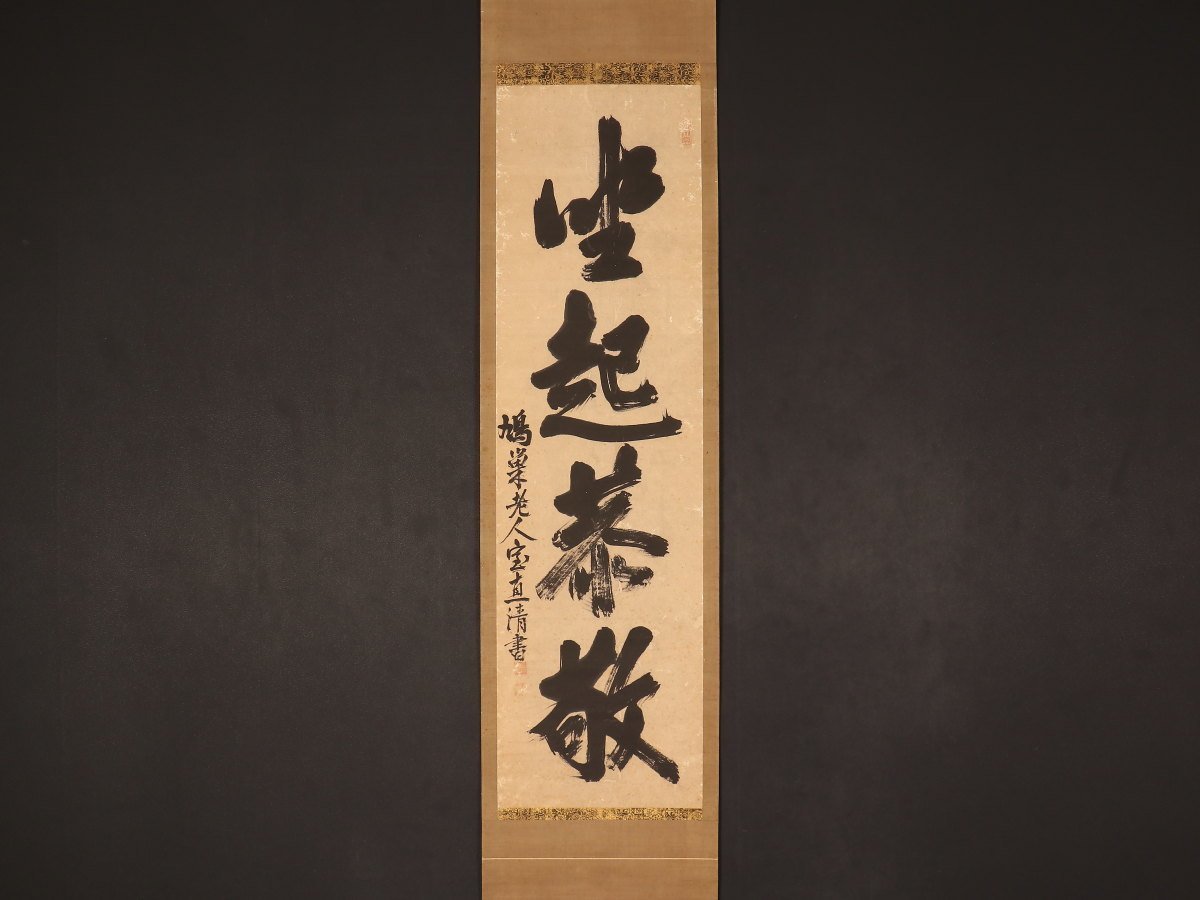 坐起恭敬
鳩巣老人室直清書